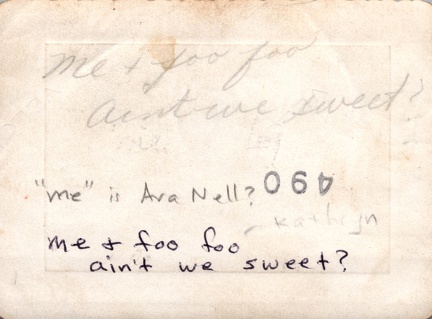 me + foo foo
aint we sweet?
"me" is Ava Nell? 490
Kathryn
me + foo foo
ain't we sweet?